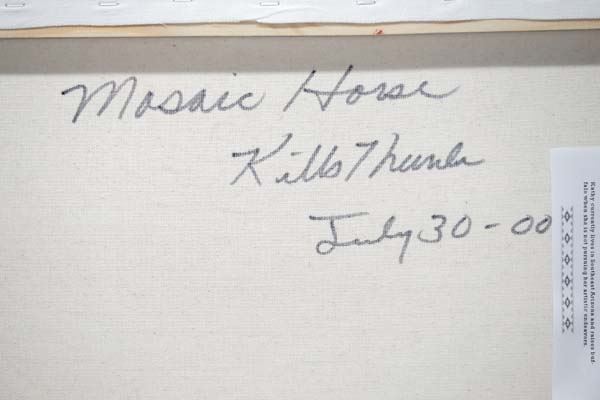 Mosaic Horse
Kills Thunder
July 30-00
Kathy currently lives in Southeast Arizona and raises buf-
falo when she is not pursuing her artistic endeavors.